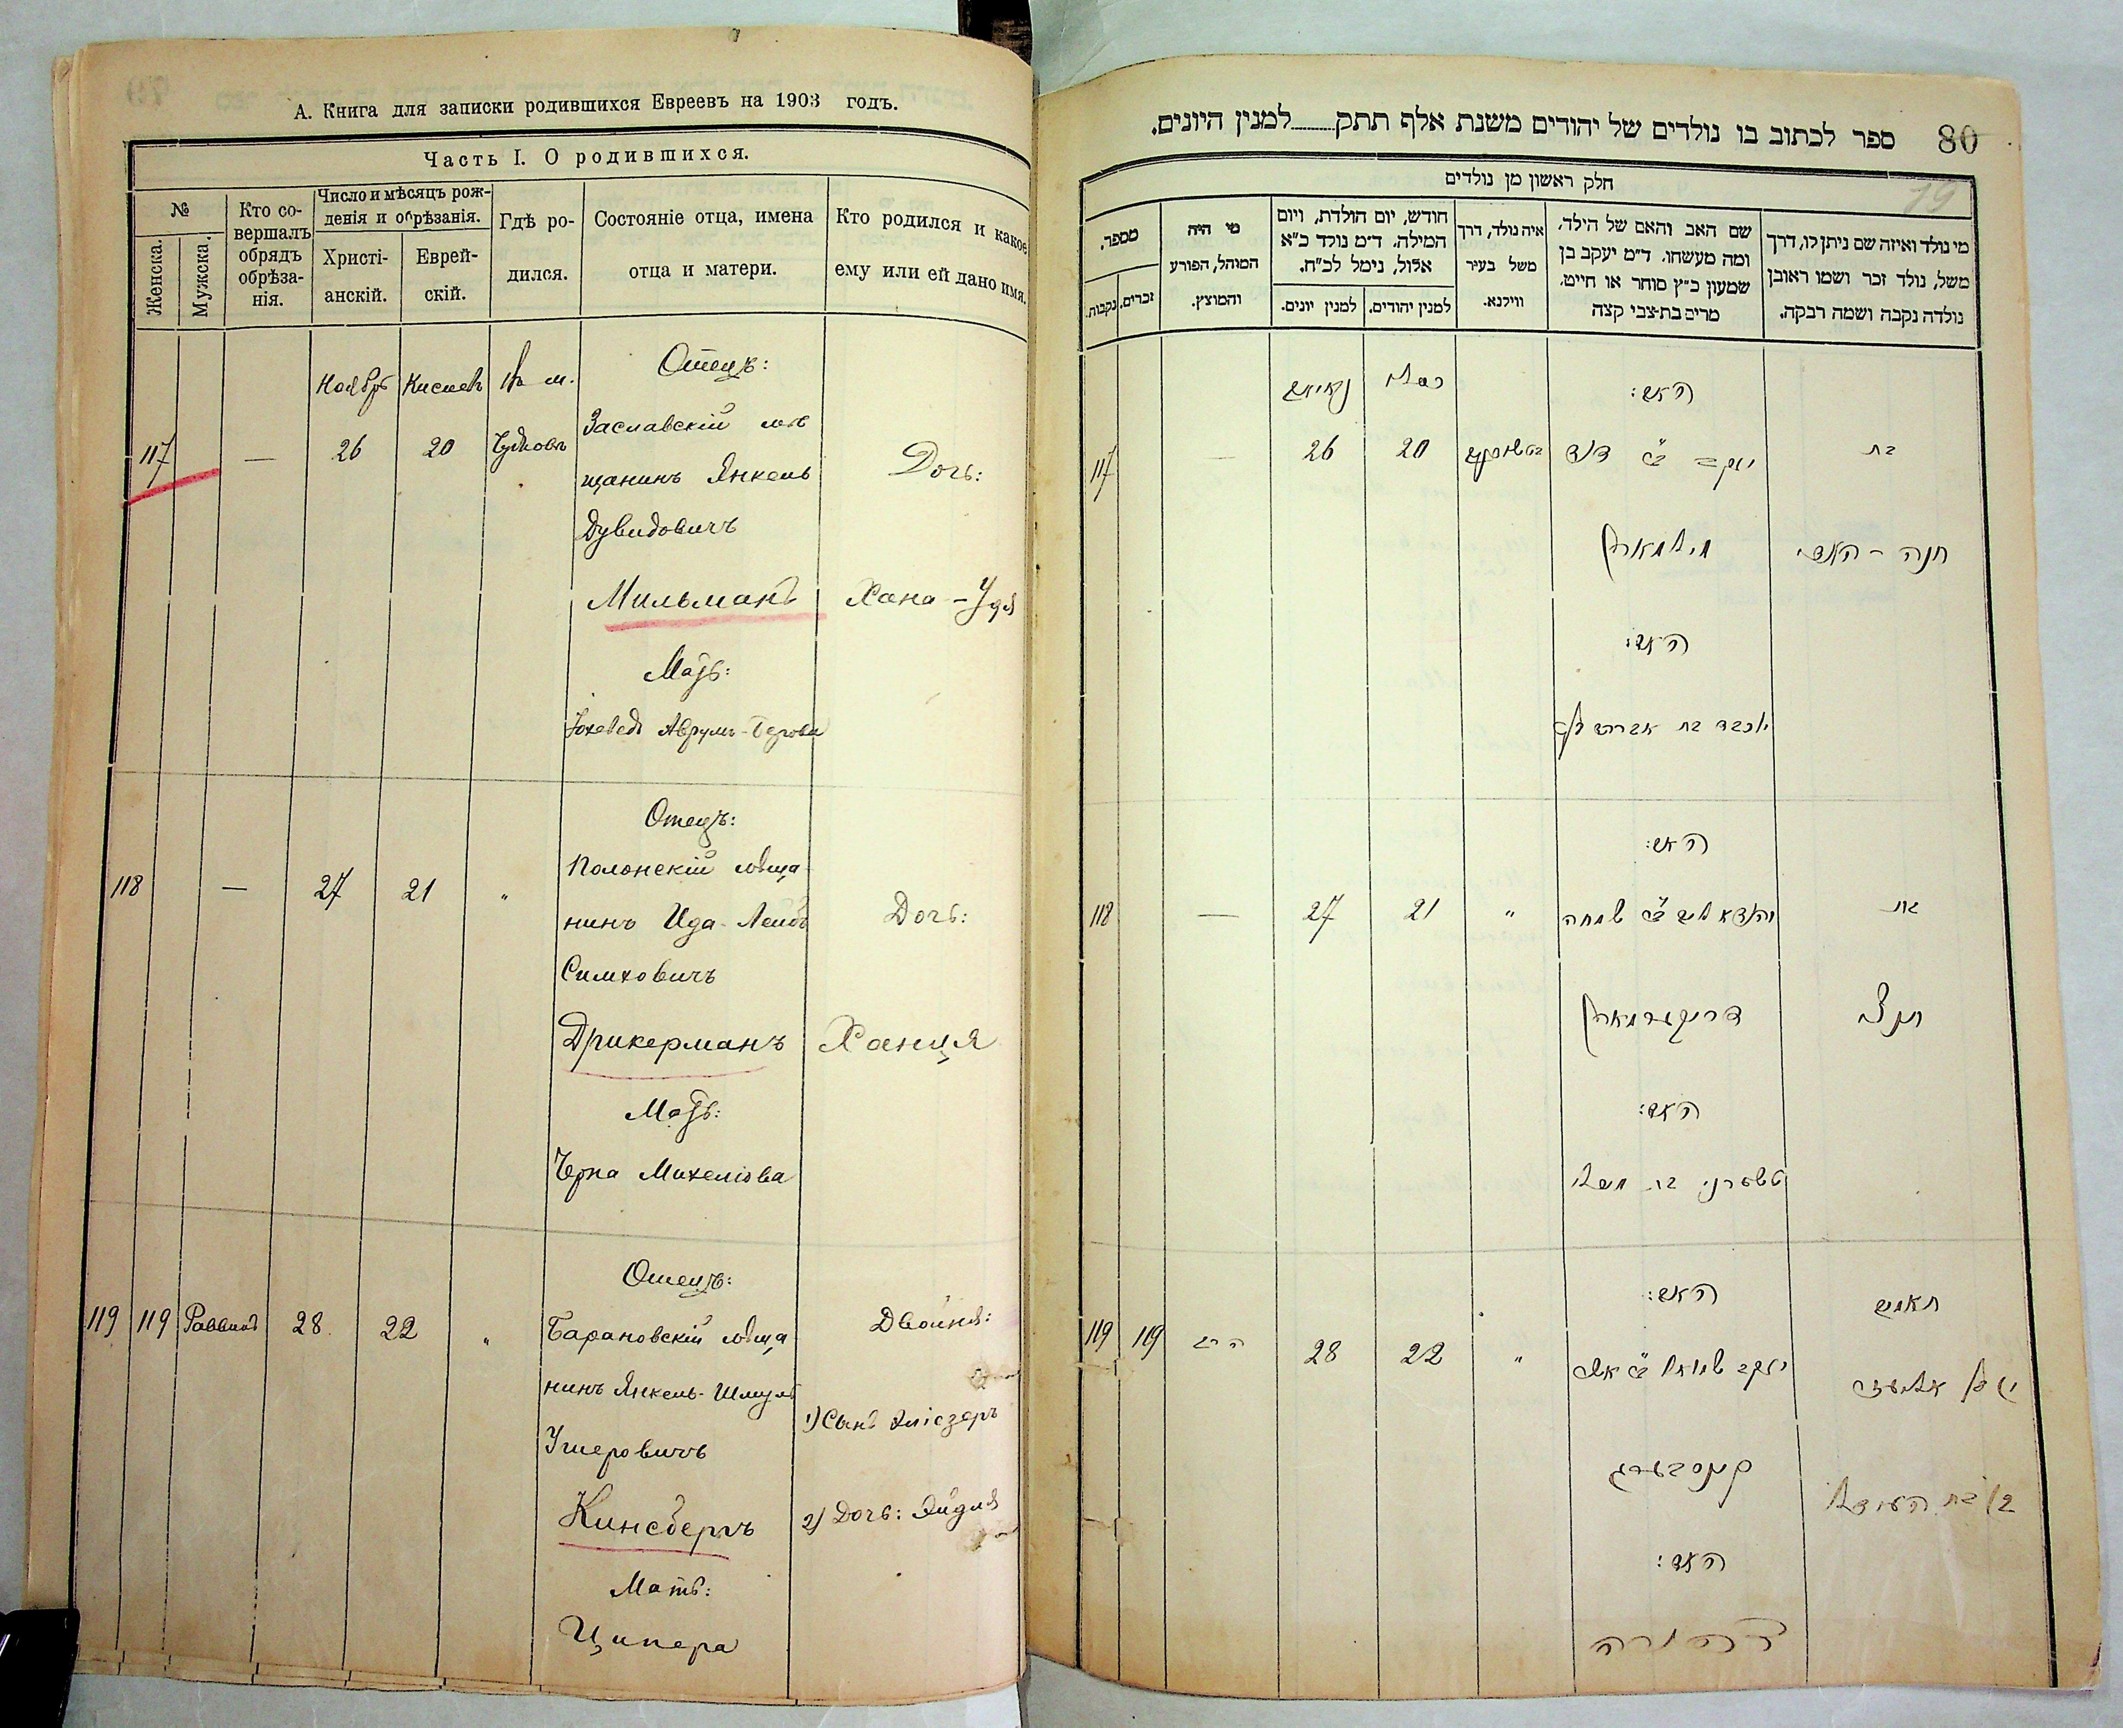 А. Книга для записки родившихся Евреевъ на 1903 годъ.
Часть I. О родившихся.
№
Женска.
Мужска.
Кто совершалъ обрядъ обрѣзанія.
Число и мѣсяцъ рожденія и обрѣзанія.
Христіанскій.
Еврейскій.
Гдѣ родился.
Состояніе отца, имена отца и матери.
Кто родился и какое ему или ей дано имя.
117
—
Ноябрь
26
Кислевъ
20
Въ м.
Чудновъ
Отецъ:
Заславскій мѣ
щанинъ Янкель
Дувидовичъ
Мильманъ
Мать:
Дочь:
Хана - Удя
118
—
27
21
"
Отецъ:
Полонскій мѣща
нинъ Ида-Лейбъ
Симховичъ
Дрикерманъ
Мать:
Черна Михеліова
Дочь:
Ханця
119
119
Раввинъ
28
22
"
Отецъ:
Барановскій мѣща
нинъ Янкель-Шмуль
Ушеровичъ
Кинсбергъ
Мать:
Ципера
Двойня:
1) Сынъ Эліезеръ
2) Дочь: Эйдля
80
79
ספר לכתוב בו נולדים של יהודים משנת אלף תתק למנין היונים.
חלק ראשון מן נולדים
מי נולד ואיזה שם ניתן לו, דרך
משל, נולד זכר ושמו ראובן
נולדה נקבה ושמה רבקה.
שם האב והאם של הילד,
ומה מעשהו. ד"מ יעקב בן
שמעון כ"ץ סוחר או חייט.
מרים בת-צבי קצה
איה נולד, דרך
משל בעיר
ווילנא.
חודש, יום הולדת, ויום
המילה. ד"מ נולד כ"א
אלול, נימל לכ"ח.
למנין יהודים.
למנין יונים.
מי היה
המוהל, הפורע
והמוצץ.
מספר.
זכרים.
נקבות.
בת
חנה - האדי
האב:
יעקב ב"ר דוד
מילמאן
האם:
יוכבד בת אברהם
כסלו
20
26
—
117
בת
האב:
שמחה
דריקערמאן
האם:
21
27
—
118
תאום
האב:
יעקב שמואל ב"ר אשר
קינסבערג
האם:
"
22
28
הרב
119
119